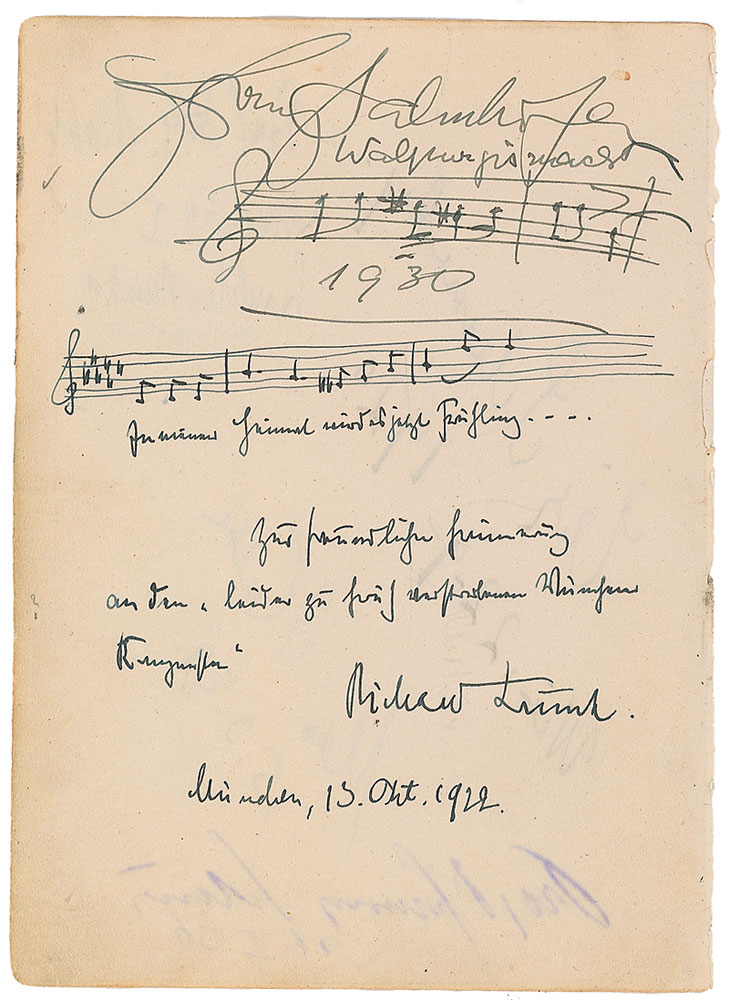 Franz Salmhofer
Walpurgisnacht
1930
In meiner Heimat wird es jetzt Frühling - - - -
Zur freundlichen Erinnerung
an den „leider zu früh verstorbenen Münchener
Komponisten“
Richard Trunk.
München, 13. Okt. 1922.